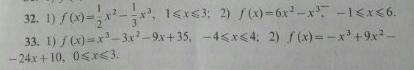 32. 1) f(x)=\frac{1}{2}x²−\frac{1}{3}x³, 1⩽x⩽3; 2) f(x)=6x²−x³, −1⩽x⩽6.
33. 1) f(x)=x³−3x²−9x+35, −4⩽x⩽4; 2) f(x)=−x³+9x²−
−24x+10, 0⩽x⩽3.